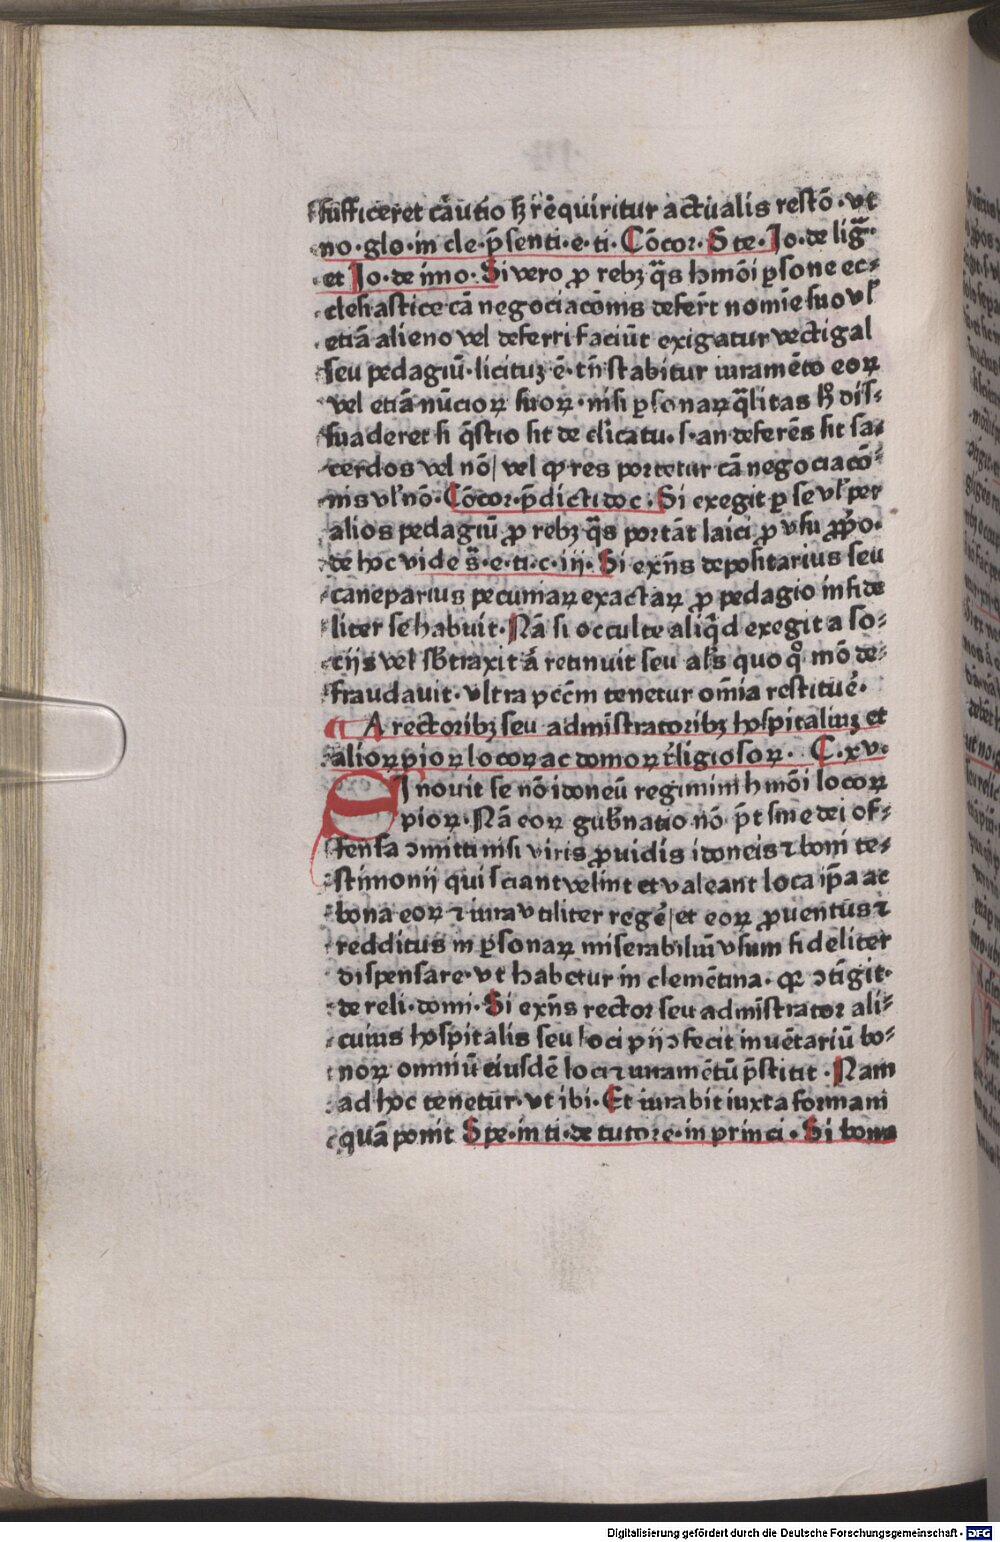 sufficeret cãutio hꝫ rẽquiritur actualis restõ · vt
no · glo · in cle · p̃senti · e · ti · Cõcor · Ste · Jo · de lig̃ ·
et Jo · de imo · Si vero ꝓ rebꝫ q̃s hmõi ꝑsone ec-
clesiastice cã negociacõnis defer̃t nomĩe suo vl̓
etiã alieno vel deferri faciũt exigatur vectigal
seu pedagiũ · licituꝫ ẽ · tñ stabitur iuramẽto eoꝝ
vel etiã nũcioꝝ suoꝝ · nisi ꝑsonaꝝ q̃litas hꝰ dis-
suaderet si q̃stio sit de clicatu · s · an deferẽs sit sa-
cerdos vel nõ / vel ꝙ res portetur cã negociacõ-
nis vl̓ nõ · Cõcor · p̃dicti doc · Si exegit ꝑ se vl̓ per
alios pedagiũ ꝓ rebꝫ q̃s portãt laici ꝓ vsu ꝓp̃o ·
de hoc vide s̃ · e · ti · c · iij · Si exñs depositarius seu
caneparius pecuniaꝝ exactaꝝ ꝓ pedagio infide
liter se habuit · Nã si occulte aliq̃d exegit a so-
cijs vel sb̃traxit ã retinuit seu al̓s quoqꝰ mõ de-
fraudauit · vltra pcc̃m tenetur om̃ia restituẽ ·
¶ A rectoribꝫ seu admĩstratoribꝫ hospitaliuꝫ et
alioꝝ pioꝝ locoꝝ ac domoꝝ r̃ligiosoꝝ · C · xv ·
SI nouit se nõ idoneũ regimini hmõi locoꝝ
pioꝝ · Nã eoꝝ gub̃natio nõ p̃t sine dei of-
fensa ɔmitti nisi viris ꝓuidis idoneis ⁊ boni te-
stimonij qui sciant velint et valeant loca ip̃a ac
bona eoꝝ ⁊ iura vtiliter regẽ / et eoꝝ ꝓuentus ⁊
redditus in ꝑsonaꝝ miserabiliũ vsum fideliter
dispensare · vt habetur in clemẽtina · qꝛ ɔtĩgit ·
de reli · domi · Si exñs rector seu admĩstrator ali-
cuius hospitalis seu loci pij ɔfecit inuẽtariũ bo-
noꝝ omniũ eiusdẽ loci ⁊ iuramẽtũ p̃stitit · Nam
ad hoc tenetur · vt ibi · Et iurabit iuxta formam
quã ponit Spe · in ti · de tutore · in princi · Si bona
Digitalisierung gefördert durch die Deutsche Forschungsgemeinschaft · DFG